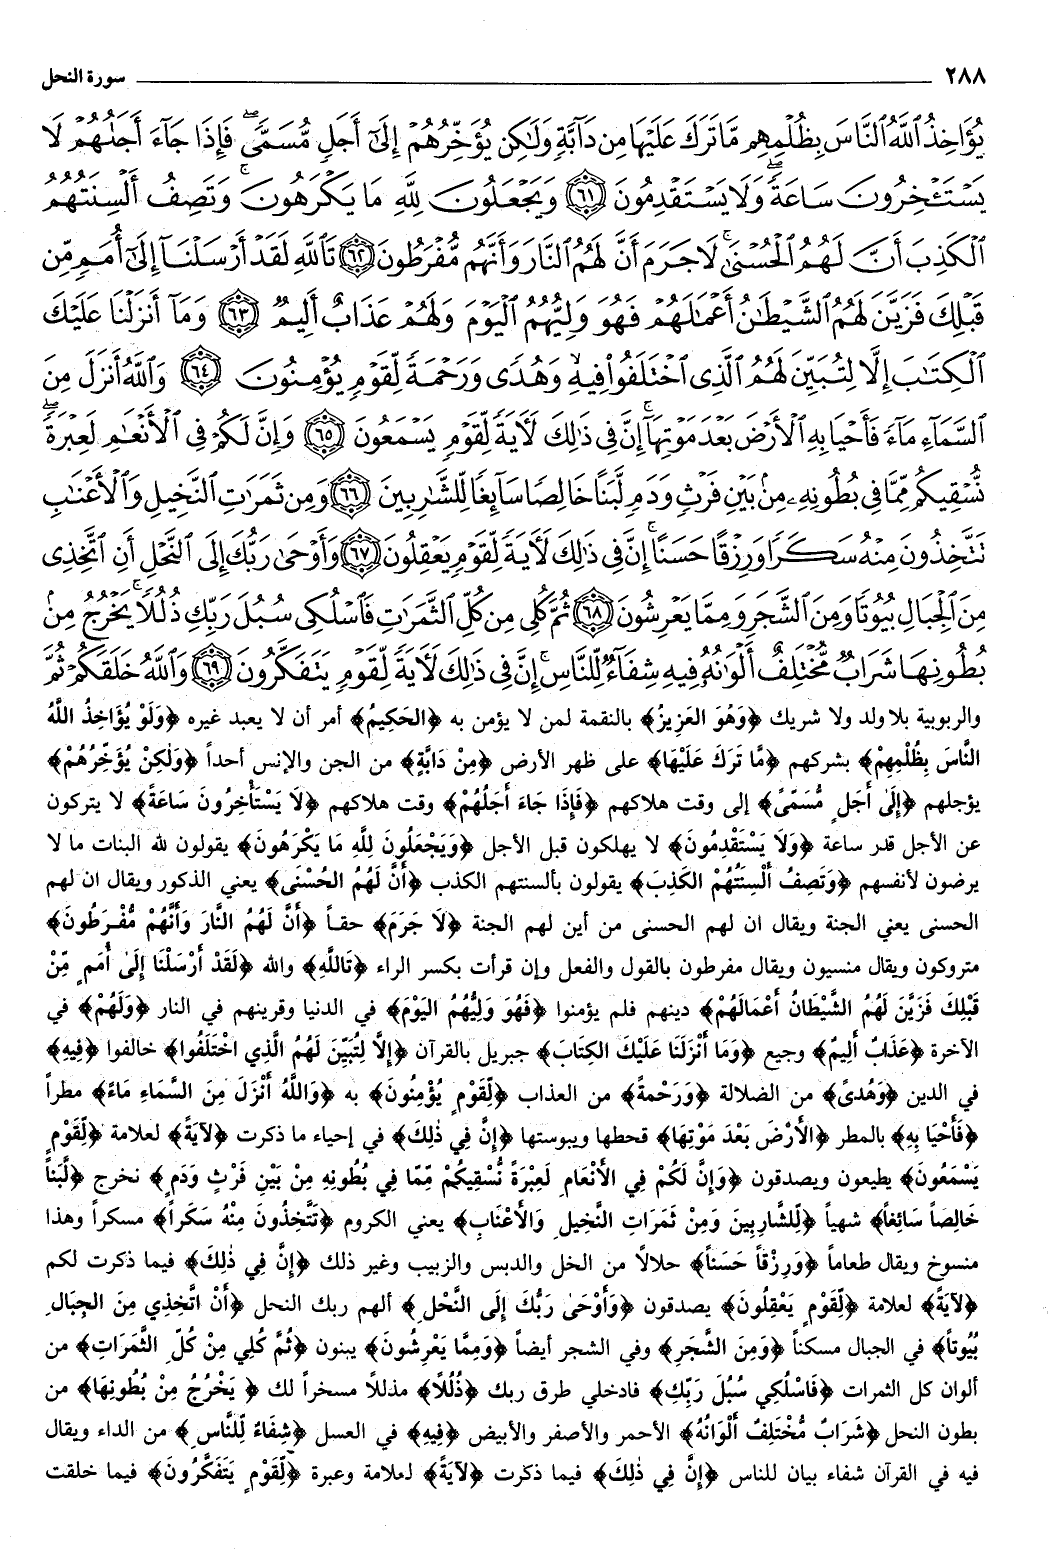 ٢٨٨ سورة النحل
يُؤَاخِذُ ٱللَّهُ ٱلنَّاسَ بِظُلْمِهِم مَّا تَرَكَ عَلَيْهَا مِن دَآبَّةٍ وَلَٰكِن يُؤَخِّرُهُمْ إِلَىٰٓ أَجَلٍ مُّسَمًّى ۖ فَإِذَا جَآءَ أَجَلُهُمْ لَا
يَسْتَـْٔخِرُونَ سَاعَةً ۖ وَلَا يَسْتَقْدِمُونَ ٦١ وَيَجْعَلُونَ لِلَّهِ مَا يَكْرَهُونَ ۚ وَتَصِفُ أَلْسِنَتُهُمُ
ٱلْكَذِبَ أَنَّ لَهُمُ ٱلْحُسْنَىٰ ۚ لَا جَرَمَ أَنَّ لَهُمُ ٱلنَّارَ وَأَنَّهُم مُّفْرَطُونَ ٦٢ تَٱللَّهِ لَقَدْ أَرْسَلْنَآ إِلَىٰٓ أُمَمٍ مِّن
قَبْلِكَ فَزَيَّنَ لَهُمُ ٱلشَّيْطَٰنُ أَعْمَٰلَهُمْ فَهُوَ وَلِيُّهُمُ ٱلْيَوْمَ وَلَهُمْ عَذَابٌ أَلِيمٌ ٦٣ وَمَآ أَنزَلْنَا عَلَيْكَ
ٱلْكِتَٰبَ إِلَّا لِتُبَيِّنَ لَهُمُ ٱلَّذِى ٱخْتَلَفُوا۟ فِيهِ ۙ وَهُدًى وَرَحْمَةً لِّقَوْمٍ يُؤْمِنُونَ ٦٤ وَٱللَّهُ أَنزَلَ مِنَ
ٱلسَّمَآءِ مَآءً فَأَحْيَا بِهِ ٱلْأَرْضَ بَعْدَ مَوْتِهَآ ۚ إِنَّ فِى ذَٰلِكَ لَءَايَةً لِّقَوْمٍ يَسْمَعُونَ ٦٥ وَإِنَّ لَكُمْ فِى ٱلْأَنْعَٰمِ لَعِبْرَةً ۖ
نُّسْقِيكُم مِّمَّا فِى بُطُونِهِۦ مِنۢ بَيْنِ فَرْثٍ وَدَمٍ لَّبَنًا خَالِصًا سَآئِغًا لِّلشَّٰرِبِينَ ٦٦ وَمِن ثَمَرَٰتِ ٱلنَّخِيلِ وَٱلْأَعْنَٰبِ
تَتَّخِذُونَ مِنْهُ سَكَرًا وَرِزْقًا حَسَنًا ۗ إِنَّ فِى ذَٰلِكَ لَءَايَةً لِّقَوْمٍ يَعْقِلُونَ ٦٧ وَأَوْحَىٰ رَبُّكَ إِلَى ٱلنَّحْلِ أَنِ ٱتَّخِذِى
مِنَ ٱلْجِبَالِ بُيُوتًا وَمِنَ ٱلشَّجَرِ وَمِمَّا يَعْرِشُونَ ٦٨ ثُمَّ كُلِى مِن كُلِّ ٱلثَّمَرَٰتِ فَٱسْلُكِى سُبُلَ رَبِّكِ ذُلُلًا ۚ يَخْرُجُ مِنۢ
بُطُونِهَا شَرَابٌ مُّخْتَلِفٌ أَلْوَٰنُهُۥ فِيهِ شِفَآءٌ لِّلنَّاسِ ۗ إِنَّ فِى ذَٰلِكَ لَءَايَةً لِّقَوْمٍ يَتَفَكَّرُونَ ٦٩ وَٱللَّهُ خَلَقَكُمْ ثُمَّ
والربوبية بلا ولد ولا شريك ﴿وَهُوَ العَزِيزُ﴾ بالنقمة لمن لا يؤمن به ﴿الحَكِيمُ﴾ أمر أن لا يعبد غيره ﴿وَلَوْ يُؤَاخِذُ اللَّهُ
النَّاسَ بِظُلْمِهِمْ﴾ بشركهم ﴿مَّا تَرَكَ عَلَيْهَا﴾ على ظهر الأرض ﴿مِنْ دَابَّةٍ﴾ من الجن والإنس أحداً ﴿وَلَكِنْ يُؤَخِّرُهُمْ﴾
يؤجلهم ﴿إِلَى أَجَلٍ مُّسَمًّى﴾ إلى وقت هلاكهم ﴿فَإِذَا جَاءَ أَجَلُهُمْ﴾ وقت هلاكهم ﴿لَا يَسْتَأْخِرُونَ سَاعَةً﴾ لا يتركون
عن الأجل قدر ساعة ﴿وَلَا يَسْتَقْدِمُونَ﴾ لا يهلكون قبل الأجل ﴿وَيَجْعَلُونَ لِلَّهِ مَا يَكْرَهُونَ﴾ يقولون لله البنات ما لا
يرضون لأنفسهم ﴿وَتَصِفُ أَلْسِنَتُهُمْ الكَذِبَ﴾ يقولون بألسنتهم الكذب ﴿أَنَّ لَهُمُ الحُسْنَى﴾ يعني الذكور ويقال ان لهم
الحسنى يعني الجنة ويقال ان لهم الحسنى من أين لهم الجنة ﴿لَا جَرَمَ﴾ حقاً ﴿أَنَّ لَهُمُ النَّارَ وَأَنَّهُمْ مُّفْرَطُونَ﴾
متروكون ويقال منسيون ويقال مفرطون بالقول والفعل وإن قرأت بكسر الراء ﴿تَاللَّهِ﴾ والله ﴿لَقَدْ أَرْسَلْنَا إِلَى أُمَمٍ مِّنْ
قَبْلِكَ فَزَيَّنَ لَهُمُ الشَّيْطَانُ أَعْمَالَهُمْ﴾ دينهم فلم يؤمنوا ﴿فَهُوَ وَلِيُّهُمُ اليَوْمَ﴾ في الدنيا وقرينهم في النار ﴿وَلَهُمْ﴾ في
الآخرة ﴿عَذَابٌ أَلِيمٌ﴾ وجيع ﴿وَمَا أَنْزَلْنَا عَلَيْكَ الكِتَابَ﴾ جبريل بالقرآن ﴿إِلَّا لِتُبَيِّنَ لَهُمُ الَّذِي اخْتَلَفُوا﴾ خالفوا ﴿فِيهِ﴾
في الدين ﴿وَهُدىً﴾ من الضلالة ﴿وَرَحْمةً﴾ من العذاب ﴿لِّقَوْمٍ يُؤْمِنُونَ﴾ به ﴿وَاللَّهُ أَنْزَلَ مِنَ السَّمَاءِ مَاءً﴾ مطراً
﴿فَأَحْيَا بِهِ﴾ بالمطر ﴿الأَرْضَ بَعْدَ مَوْتِهَا﴾ قحطها ويبوستها ﴿إِنَّ فِي ذَلِكَ﴾ في إحياء ما ذكرت ﴿لَآيَةً﴾ لعلامة ﴿لِّقَوْمٍ
يَسْمَعُونَ﴾ يطيعون ويصدقون ﴿وَإِنَّ لَكُمْ فِي الأَنْعَامِ لَعِبْرَةً نُّسْقِيكُمْ مِّمَّا فِي بُطُونِهِ مِنْ بَيْنِ فَرْثٍ وَدَمٍ﴾ نخرج ﴿لَّبَناً
خَالِصاً سَائِغاً﴾ شهياً ﴿لِّلشَّارِبِينَ وَمِنْ ثَمَرَاتِ النَّخِيلِ وَالأَعْنَابِ﴾ يعني الكروم ﴿تَتَّخِذُونَ مِنْهُ سَكَراً﴾ مسكراً وهذا
منسوخ ويقال طعاماً ﴿وَرِزْقاً حَسَناً﴾ حلالاً من الخل والدبس والزبيب وغير ذلك ﴿إِنَّ فِي ذَلِكَ﴾ فيما ذكرت لكم
﴿لَآيَةً﴾ لعلامة ﴿لِّقَوْمٍ يَعْقِلُونَ﴾ يصدقون ﴿وَأَوْحَى رَبُّكَ إِلَى النَّحْلِ﴾ ألهم ربك النحل ﴿أَنْ اتَّخِذِي مِنَ الجِبَالِ
بُيُوتاً﴾ في الجبال مسكناً ﴿وَمِنَ الشَّجَرِ﴾ وفي الشجر أيضاً ﴿وَمِمَّا يَعْرِشُونَ﴾ يبنون ﴿ثُمَّ كُلِي مِنْ كُلِّ الثَّمَرَاتِ﴾ من
ألوان كل الثمرات ﴿فَاسْلُكِي سُبُلَ رَبِّكِ﴾ فادخلي طرق ربك ﴿ذُلُلاً﴾ مذللاً مسخراً لك ﴿يَخْرُجُ مِنْ بُطُونِهَا﴾ من
بطون النحل ﴿شَرَابٌ مُّخْتَلِفٌ أَلْوَانُهُ﴾ الأحمر والأصفر والأبيض ﴿فِيهِ﴾ في العسل ﴿شِفَاءٌ لِّلنَّاسِ﴾ من الداء ويقال
فيه في القرآن شفاء بيان للناس ﴿إِنَّ فِي ذَلِكَ﴾ فيما ذكرت ﴿لَآيَةً﴾ لعلامة وعبرة ﴿لِّقَوْمٍ يَتَفَكَّرُونَ﴾ فيما خلقت